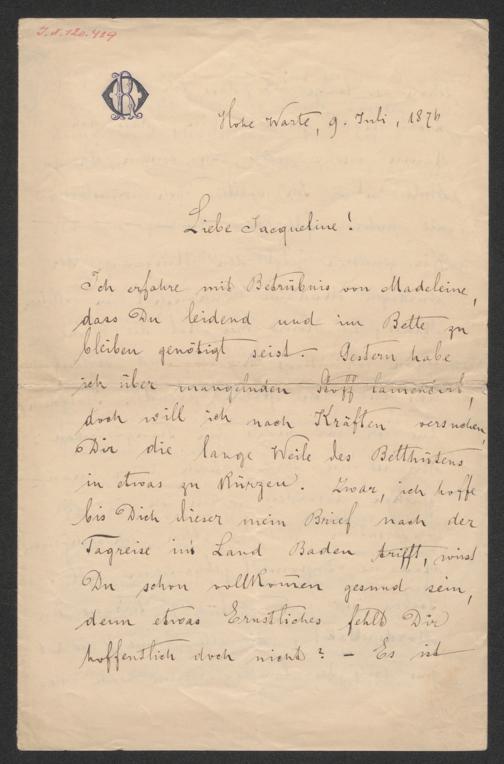 I. N. 120.429
Hohe Warte, 9. Juli, 1876
Liebe Jacqueline!
Ich erfahre mit Betrübnis von Madeleine,
dass Du leidend und im Bette zu
bleiben genötigt seist. Gestern habe
ich über mangelnden Stoff lamentirt,
doch will ich nach Kräften versuchen,
Dir die lange Weile des Betthütens
in etwas zu kürzen. Zwar, ich hoffe
bis Dich dieser mein Brief nach der
Tagreise ins Land Baden trifft, wirst
Du schon vollkom̅en gesund sein,
denn etwas Ernstliches fehlt Dir
hoffentlich doch nicht? – Es ist